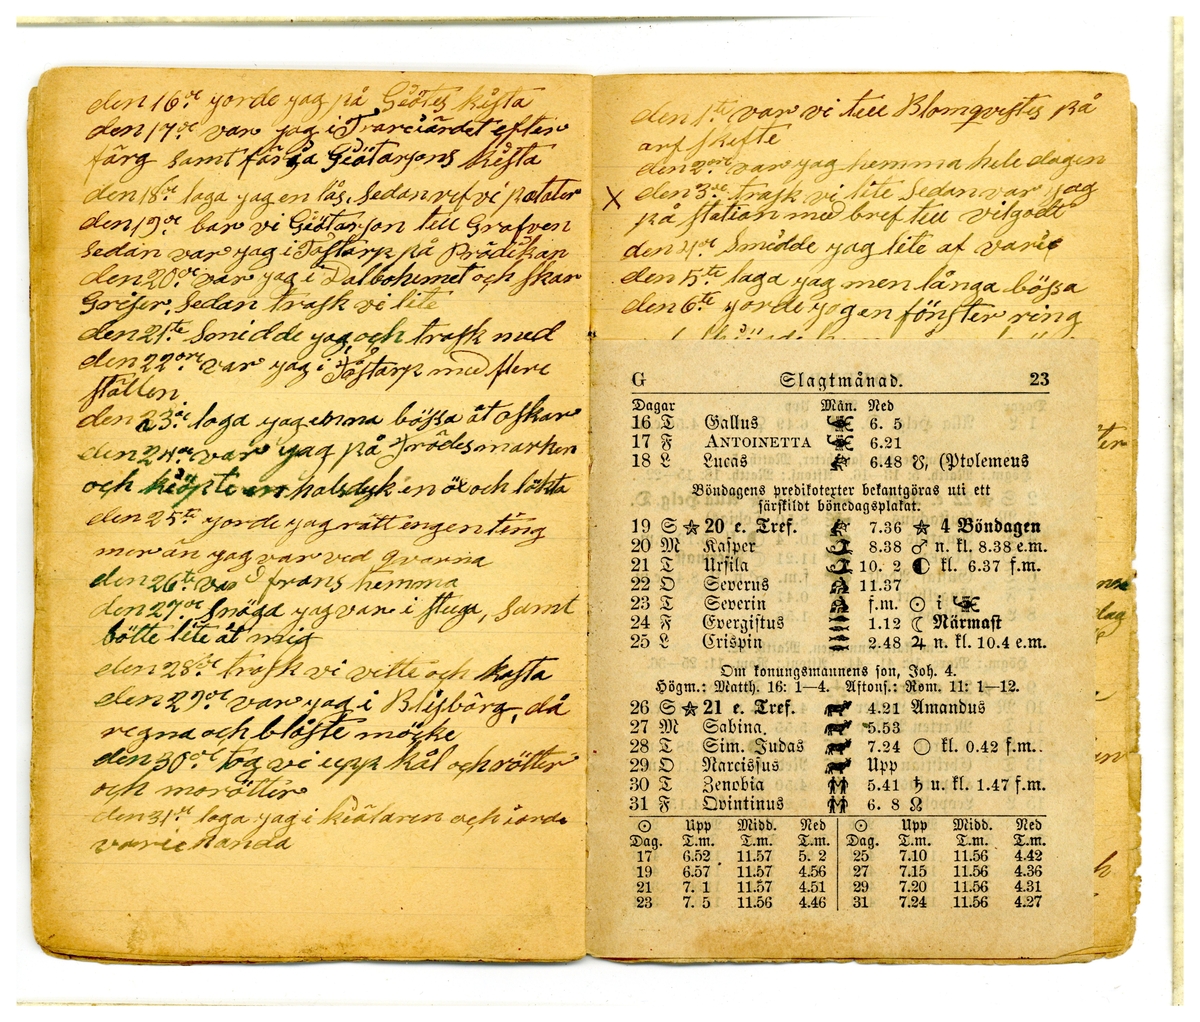 den 16de gorde jag på Giötes kista
den 17de var jag i Tvarciärdet efter
färg samt färga Giötarsons kista
den 18de laga jag en lås, sedan ref vi potater
den 19de bar vi Giötarson till Grafven
sedan var jag i Tåstarp på Prädikan
den 20de var jag i Dalbohemet och skar
Griser, sedan trask vi lite
den 21ste Smidde jag och trask med
den 22dre var jag i Tåstarp med flere
ställen
den 23de laga jag enna bössa åt oskar
den 24de var jag på Frödes marken
och kiöpte en halsdyk en öl och lökta
den 25te gorde jag rätt engen ting
mer än jag var ved qvarna
den 26te var frans hemma
den 27de Snöga jag var i stuga, Samt
bötte lite åt mig
den 28de trask vi vitte och kasta
den 29de var jag i Blisbärg, då
regna och blåste möcke
den 30de tog vi upp kål och rötter
och morötter
den 31ste laga jag i kiälaren och iorde
varie handa
den 1te var vi till Blomqvistes på
arf skefte
den 2dre var jag hemma hele dagen
X den 3de trask vi lite sedan var jag
på station med bref till vilgodt
den 4de Smidde jag lite af varie
den 5te laga jag men långa bössa
den 6te gorde jag en fönster ring
G Slagtmånad. 23
Dagar Mån. Ned
16 T Gallus 6. 5
17 F ANTOINETTA 6.21
18 L Lucas 6.48 ☋, (Ptolemeus
Böndagens predikotexter bekantgöras uti ett
särskildt bönedagsplakat.
19 S ★ 20 e. Tref. 7.36 ★ 4 Böndagen
20 M Kasper 8.38 ♂ n. kl. 8.38 e.m.
21 T Ursila 10. 2 ◐ kl. 6.37 f.m.
22 O Severus 11.37
23 T Severin f.m. ☉ i ♏
24 F Evergistus 1.12 ☾ Närmast
25 L Crispin 2.48 ♃ n. kl. 10.4 e.m.
Om konungsmannens son, Joh. 4.
Högm.: Matth. 16: 1—4. Aftons.: Rom. 11: 1—12.
26 S ★ 21 e. Tref. 4.21 Amandus
27 M Sabina. 5.53
28 T Sim. Judas 7.24 ○ kl. 0.42 f.m.
29 O Narcissus Upp
30 T Zenobia 5.41 ♄ u. kl. 1.47 f.m.
31 F Qvintinus 6. 8 ☊
☉ Upp Midd. Ned ☉ Upp Midd. Ned
Dag. T.m. T.m. T.m. Dag. T.m. T.m. T.m.
17 6.52 11.57 5. 2 25 7.10 11.56 4.42
19 6.57 11.57 4.56 27 7.15 11.56 4.36
21 7. 1 11.57 4.51 29 7.20 11.56 4.31
23 7. 5 11.56 4.46 31 7.24 11.56 4.27